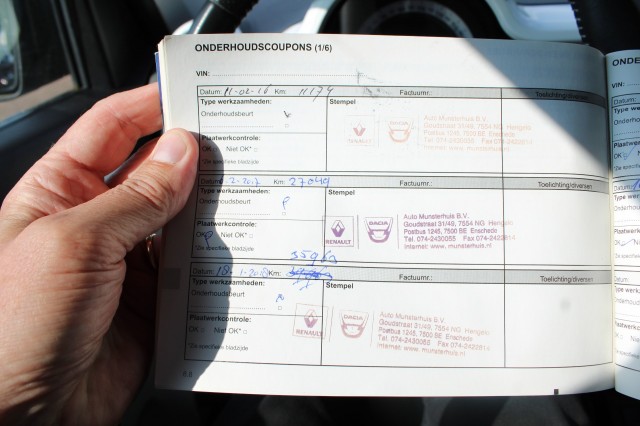 ONDERHOUDSCOUPONS (1/6)
VIN:
Datum: 11-02-16 Km: 11174 Factuurnr.: Toelichting/diversen
Type werkzaamheden: Stempel
Onderhoudsbeurt
Auto Munsterhuis B.V.
Goudstraat 31/49, 7554 NG Hengelo
Postbus 1245, 7500 BE Enschede
Tel. 074-2430055 Fax 074-2422814
Internet: www.munsterhuis.nl
Plaatwerkcontrole:
OK Niet OK*
*Zie specifieke bladzijde
Datum: 2-2017 Km: 27049 Factuurnr.: Toelichting/diversen
Type werkzaamheden: Stempel
Onderhoudsbeurt
RENAULT DACIA
Auto Munsterhuis B.V.
Goudstraat 31/49, 7554 NG Hengelo
Postbus 1245, 7500 BE Enschede
Tel. 074-2430055 Fax 074-2422814
Internet: www.munsterhuis.nl
Plaatwerkcontrole:
OK Niet OK*
*Zie specifieke bladzijde
Datum: Km: Factuurnr.: Toelichting/diversen
Type werkzaamheden: Stempel
Onderhoudsbeurt
RENAULT DACIA
Auto Munsterhuis B.V.
Goudstraat 31/49, 7554 NG Hengelo
Postbus 1245, 7500 BE Enschede
Tel. 074-2430055 Fax 074-2422814
Internet: www.munsterhuis.nl
Plaatwerkcontrole:
OK Niet OK*
*Zie specifieke bladzijde
6.6